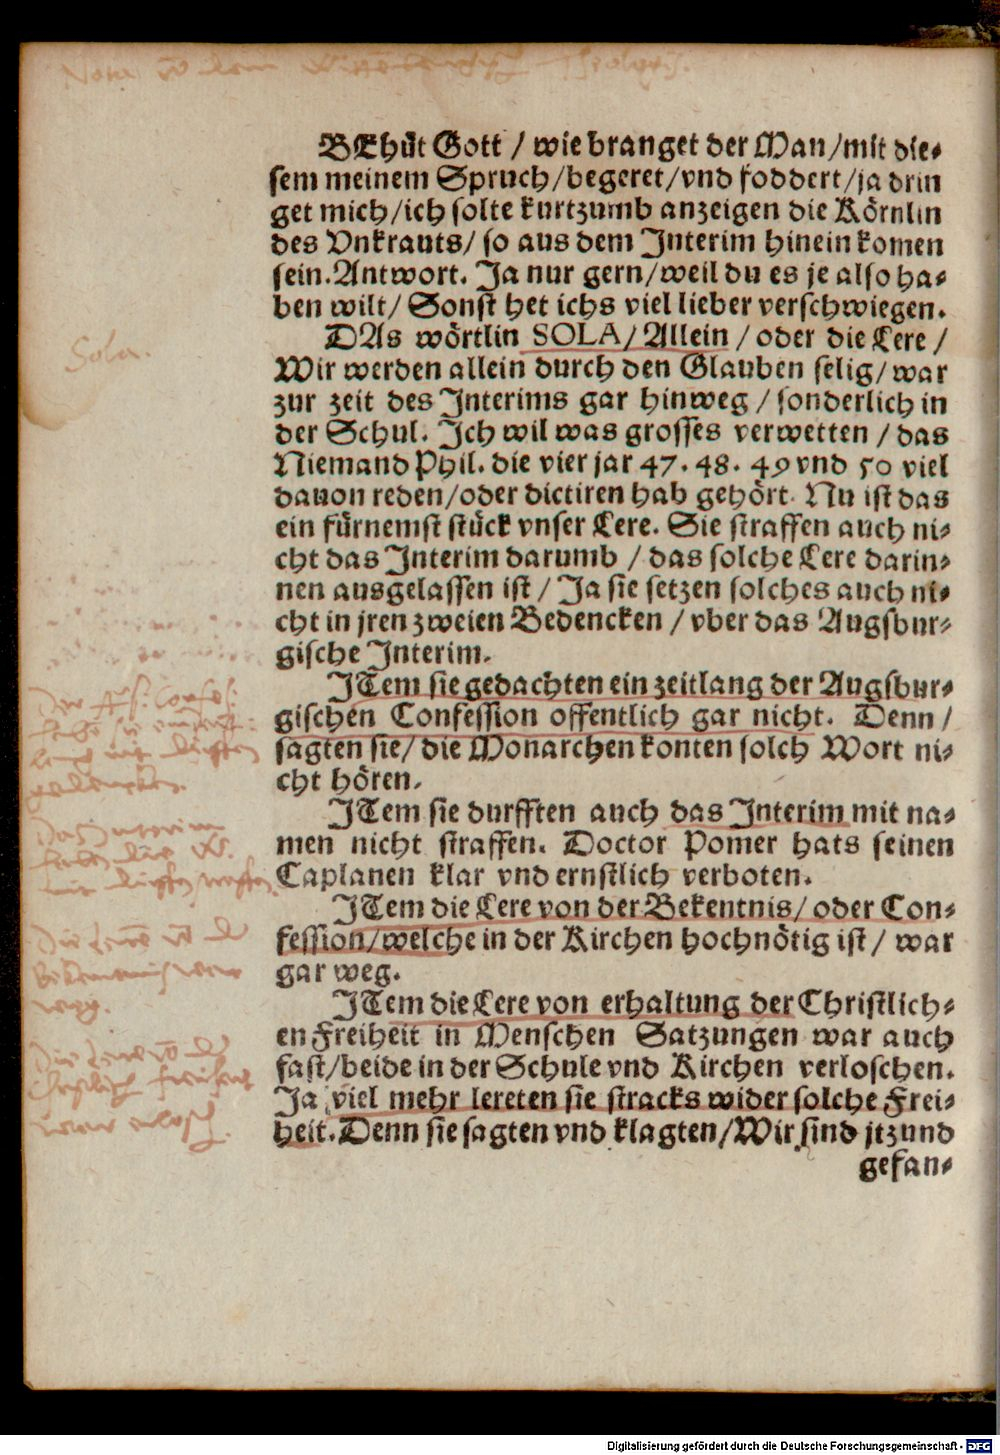 BEhüt Gott / wie branget der Man/mit die⸗
sem meinem Spruch/begeret/vnd foddert/ja drin
get mich/ich solte kurtzumb anzeigen die Körnlin
des Vnkrauts/ so aus dem Interim hinein komen
sein.Antwort. Ja nur gern/weil du es je also ha⸗
ben wilt/ Sonst het ichs viel lieber verschwiegen.
Sola.
DAs wörtlin SOLA/Allein / oder die Lere /
Wir werden allein durch den Glauben selig/war
zur zeit des Interims gar hinweg / sonderlich in
der Schul. Ich wil was grosses verwetten / das
Niemand Phil. die vier jar 47. 48. 49 vnd 50 viel
dauon reden/oder dictiren hab gehört. Nu ist das
ein fürnemst stück vnser Lere. Sie straffen auch ni⸗
cht das Interim darumb / das solche Lere darin⸗
nen ausgelassen ist / Ja sie setzen solches auch ni⸗
cht in jren zweien Bedencken / vber das Augsbur⸗
gische Interim.
ITem sie gedachten ein zeitlang der Augsbur⸗
gischen Confession offentlich gar nicht. Denn /
sagten sie/ die Monarchen konten solch Wort ni⸗
cht hören.
ITem sie durfften auch das Interim mit na⸗
men nicht straffen. Doctor Pomer hats seinen
Caplanen klar vnd ernstlich verboten.
ITem die Lere von der Bekentnis/ oder Con⸗
fession/welche in der Kirchen hochnötig ist / war
gar weg.
ITem die Lere von erhaltung der Christlich⸗
en Freiheit in Menschen Satzungen war auch
fast/beide in der Schule vnd Kirchen verloschen.
Ja viel mehr lereten sie stracks wider solche Frei⸗
heit.Denn sie sagten vnd klagten/Wir sind jtzund
gefan⸗
Digitalisierung gefördert durch die Deutsche Forschungsgemeinschaft - DFG